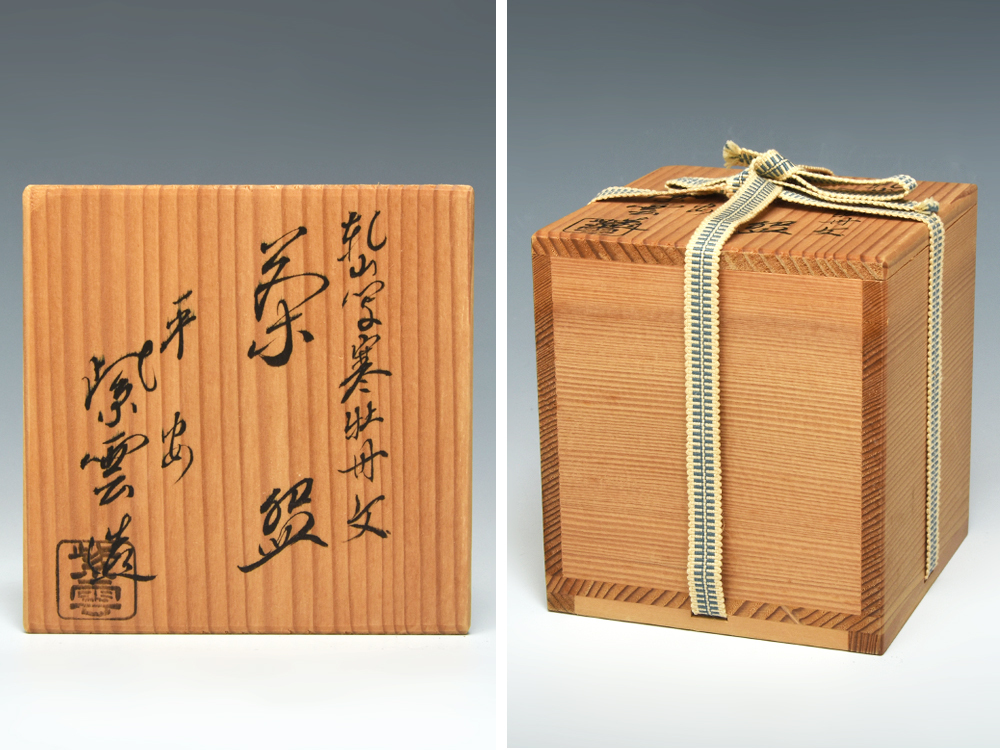 乾山写寒牡丹文
茶盌
平安
紫雲造
紫雲